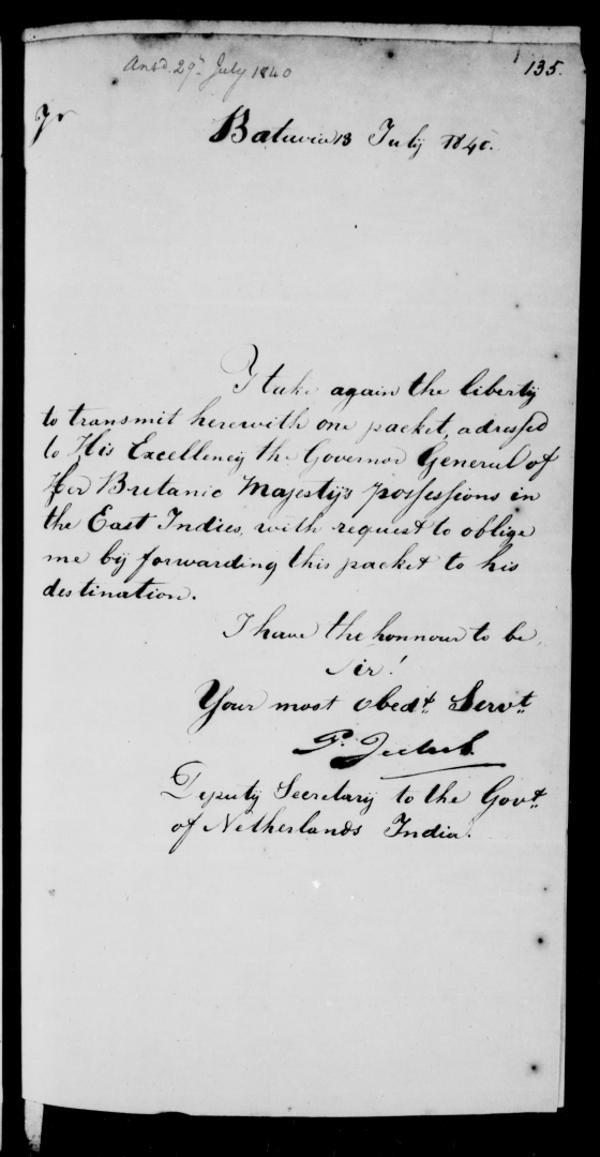 Ansd. 29th July 1840
135.
Batavia 13 July 1840.
I take again the liberty
to transmit herewith one packet, adressed
to His Excellency the Governor General of
Her Britanic Majesty's possessions in
the East Indies, with request to oblige
me by forwarding this packet to his
destination.
I have the honnour to be,
Sir!
Your most Obedt. Servt.
P.
Deputy Secretary to the Govt.
of Netherlands India.